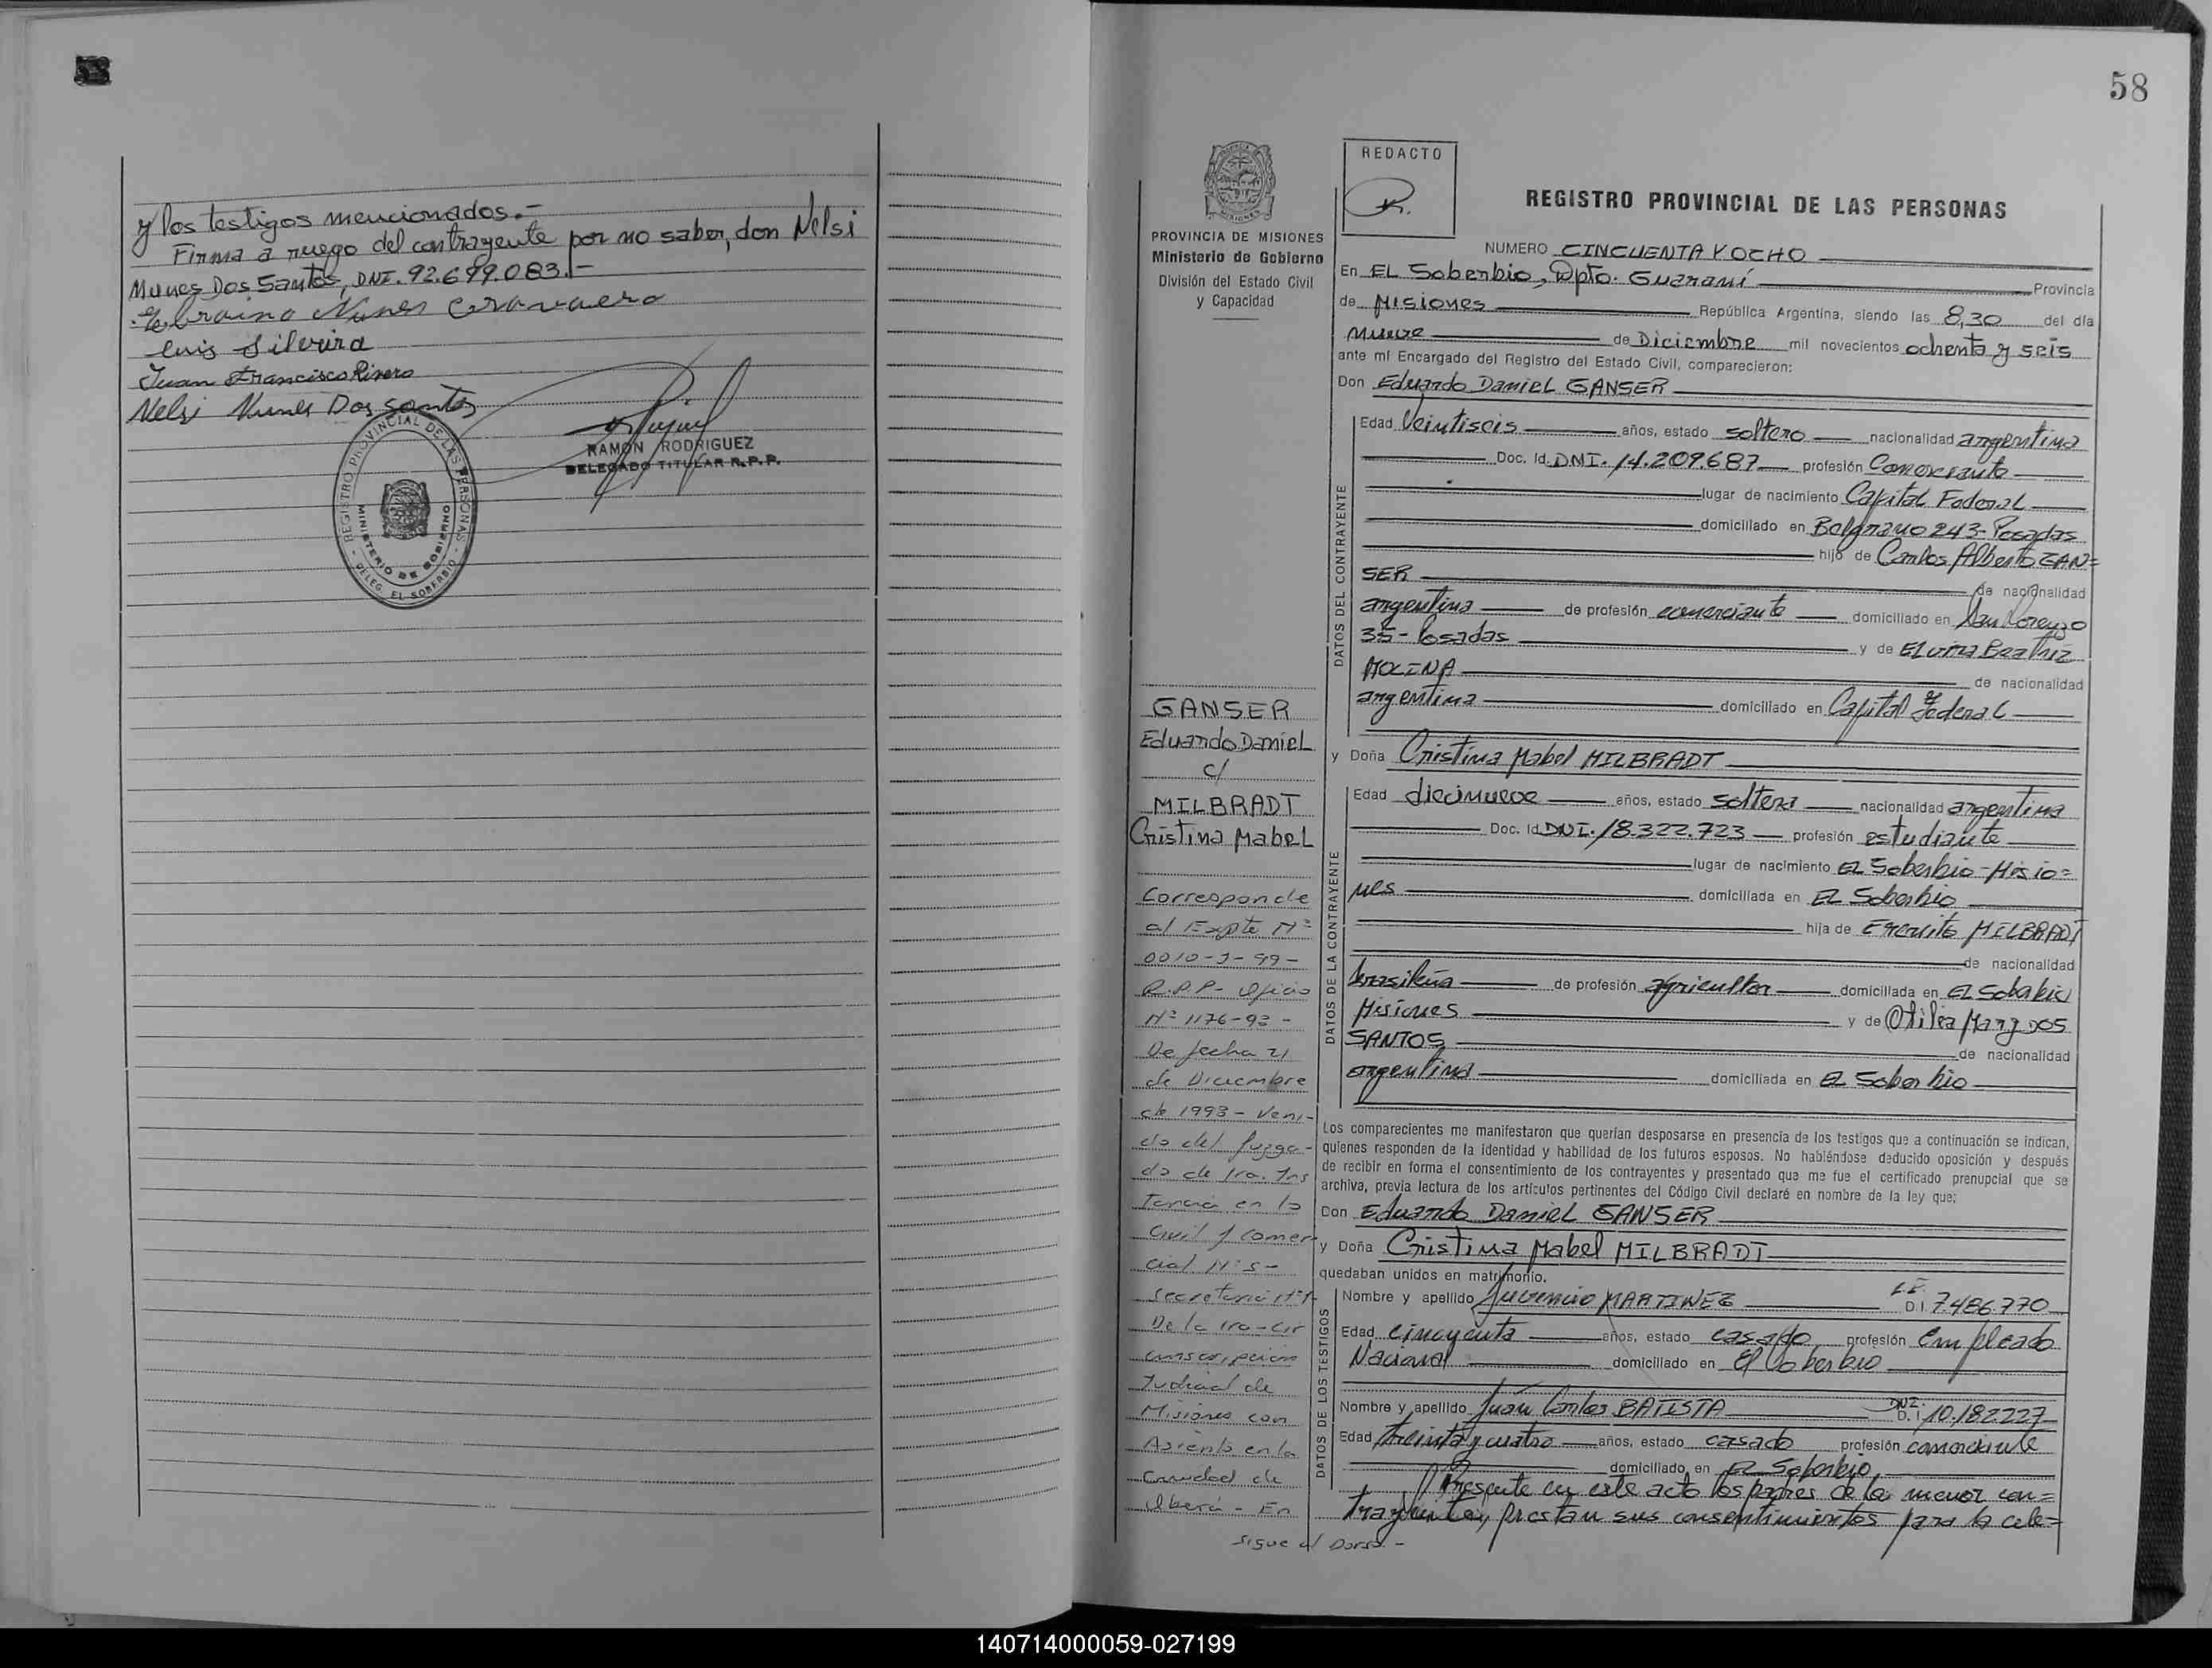 y los testigos mencionados.-
Firma a ruego del contrayente por no saber, don Nelsi
Nunes Dos Santos, DNI. 92.699.083.-
Nunes
Luis Silveira
Juan Francisco Rivero
Nelsi Nunes Dos Santos
RAMON RODRIGUEZ
DELEGADO TITULAR R.P.P.
REGISTRO PROVINCIAL DE LAS PERSONAS
MINISTERIO DE GOBIERNO
DELEG. EL SOBERBIO
58
REDACTO
PROVINCIA DE MISIONES
Ministerio de Gobierno
División del Estado Civil
y Capacidad
REGISTRO PROVINCIAL DE LAS PERSONAS
NUMERO CINCUENTA Y OCHO
En EL Soberbio, Dpto. Guaraní Provincia
de Misiones República Argentina, siendo las 8,30 del día
nueve de Diciembre mil novecientos ochenta y seis
ante mí Encargado del Registro del Estado Civil, comparecieron:
Don Eduardo Daniel GANSER
DATOS DEL CONTRAYENTE
Edad Veintiseis años, estado soltero nacionalidad argentina
Doc. Id. DNI. 14.209.687 profesión Comerciante
lugar de nacimiento Capital Federal
domiciliado en Belgrano 243- Posadas
hijo de Carlos Alberto GAN=
SER de nacionalidad
argentina de profesión comerciante domiciliado en San Lorenzo
35- Posadas y de Elvira Beatriz
MOLINA de nacionalidad
argentina domiciliado en Capital Federal
y Doña Cristina Mabel MILBRADT
DATOS DE LA CONTRAYENTE
Edad diecinueve años, estado soltera nacionalidad argentina
Doc. Id. DNI. 18.322.723 profesión estudiante
lugar de nacimiento EL Soberbio-Misio=
nes domiciliada en EL Soberbio
hija de MILBRADT
de nacionalidad
brasileña de profesión agricultor domiciliada en EL Soberbio
Misiones y de Otilia DOS
SANTOS de nacionalidad
argentina domiciliada en EL Soberbio
Los comparecientes me manifestaron que querían desposarse en presencia de los testigos que a continuación se indican,
quienes responden de la identidad y habilidad de los futuros esposos. No habiéndose deducido oposición y después
de recibir en forma el consentimiento de los contrayentes y presentado que me fue el certificado prenupcial que se
archiva, previa lectura de los artículos pertinentes del Código Civil declaré en nombre de la ley que:
Don Eduardo Daniel GANSER
y Doña Cristina Mabel MILBRADT
quedaban unidos en matrimonio.
DATOS DE LOS TESTIGOS
Nombre y apellido Juvencio MARTINEZ L.E. D.I. 7.486.770
Edad cincuenta años, estado casado profesión empleado
Nacional domiciliado en El Soberbio
Nombre y apellido Juan Carlos BATISTA DNI. D.I. 10.182.227
Edad treinta y cuatro años, estado casado profesión comerciante
domiciliado en EL Soberbio
Presente en este acto los padres de la menor con=
trayente, prestan sus consentimientos para la cele=
GANSER
Eduardo Daniel
c/
MILBRADT
Cristina Mabel
Corresponde
al Expte Nº
0010-J-99-
R.P.P- Oficio
Nº 1176-93-
De fecha 21
de Diciembre
de 1993- Veni-
do del Juzga-
do de 1ra. Ins
tancia en lo
Civil y Comer-
cial Nº 5-
Secretaria Nº 1
De la 1ra-Cir
cunscripción
Judicial de
Misiones con
Asiento en la
Ciudad de
Oberá- En
sigue al Dorso.-
140714000059-027199